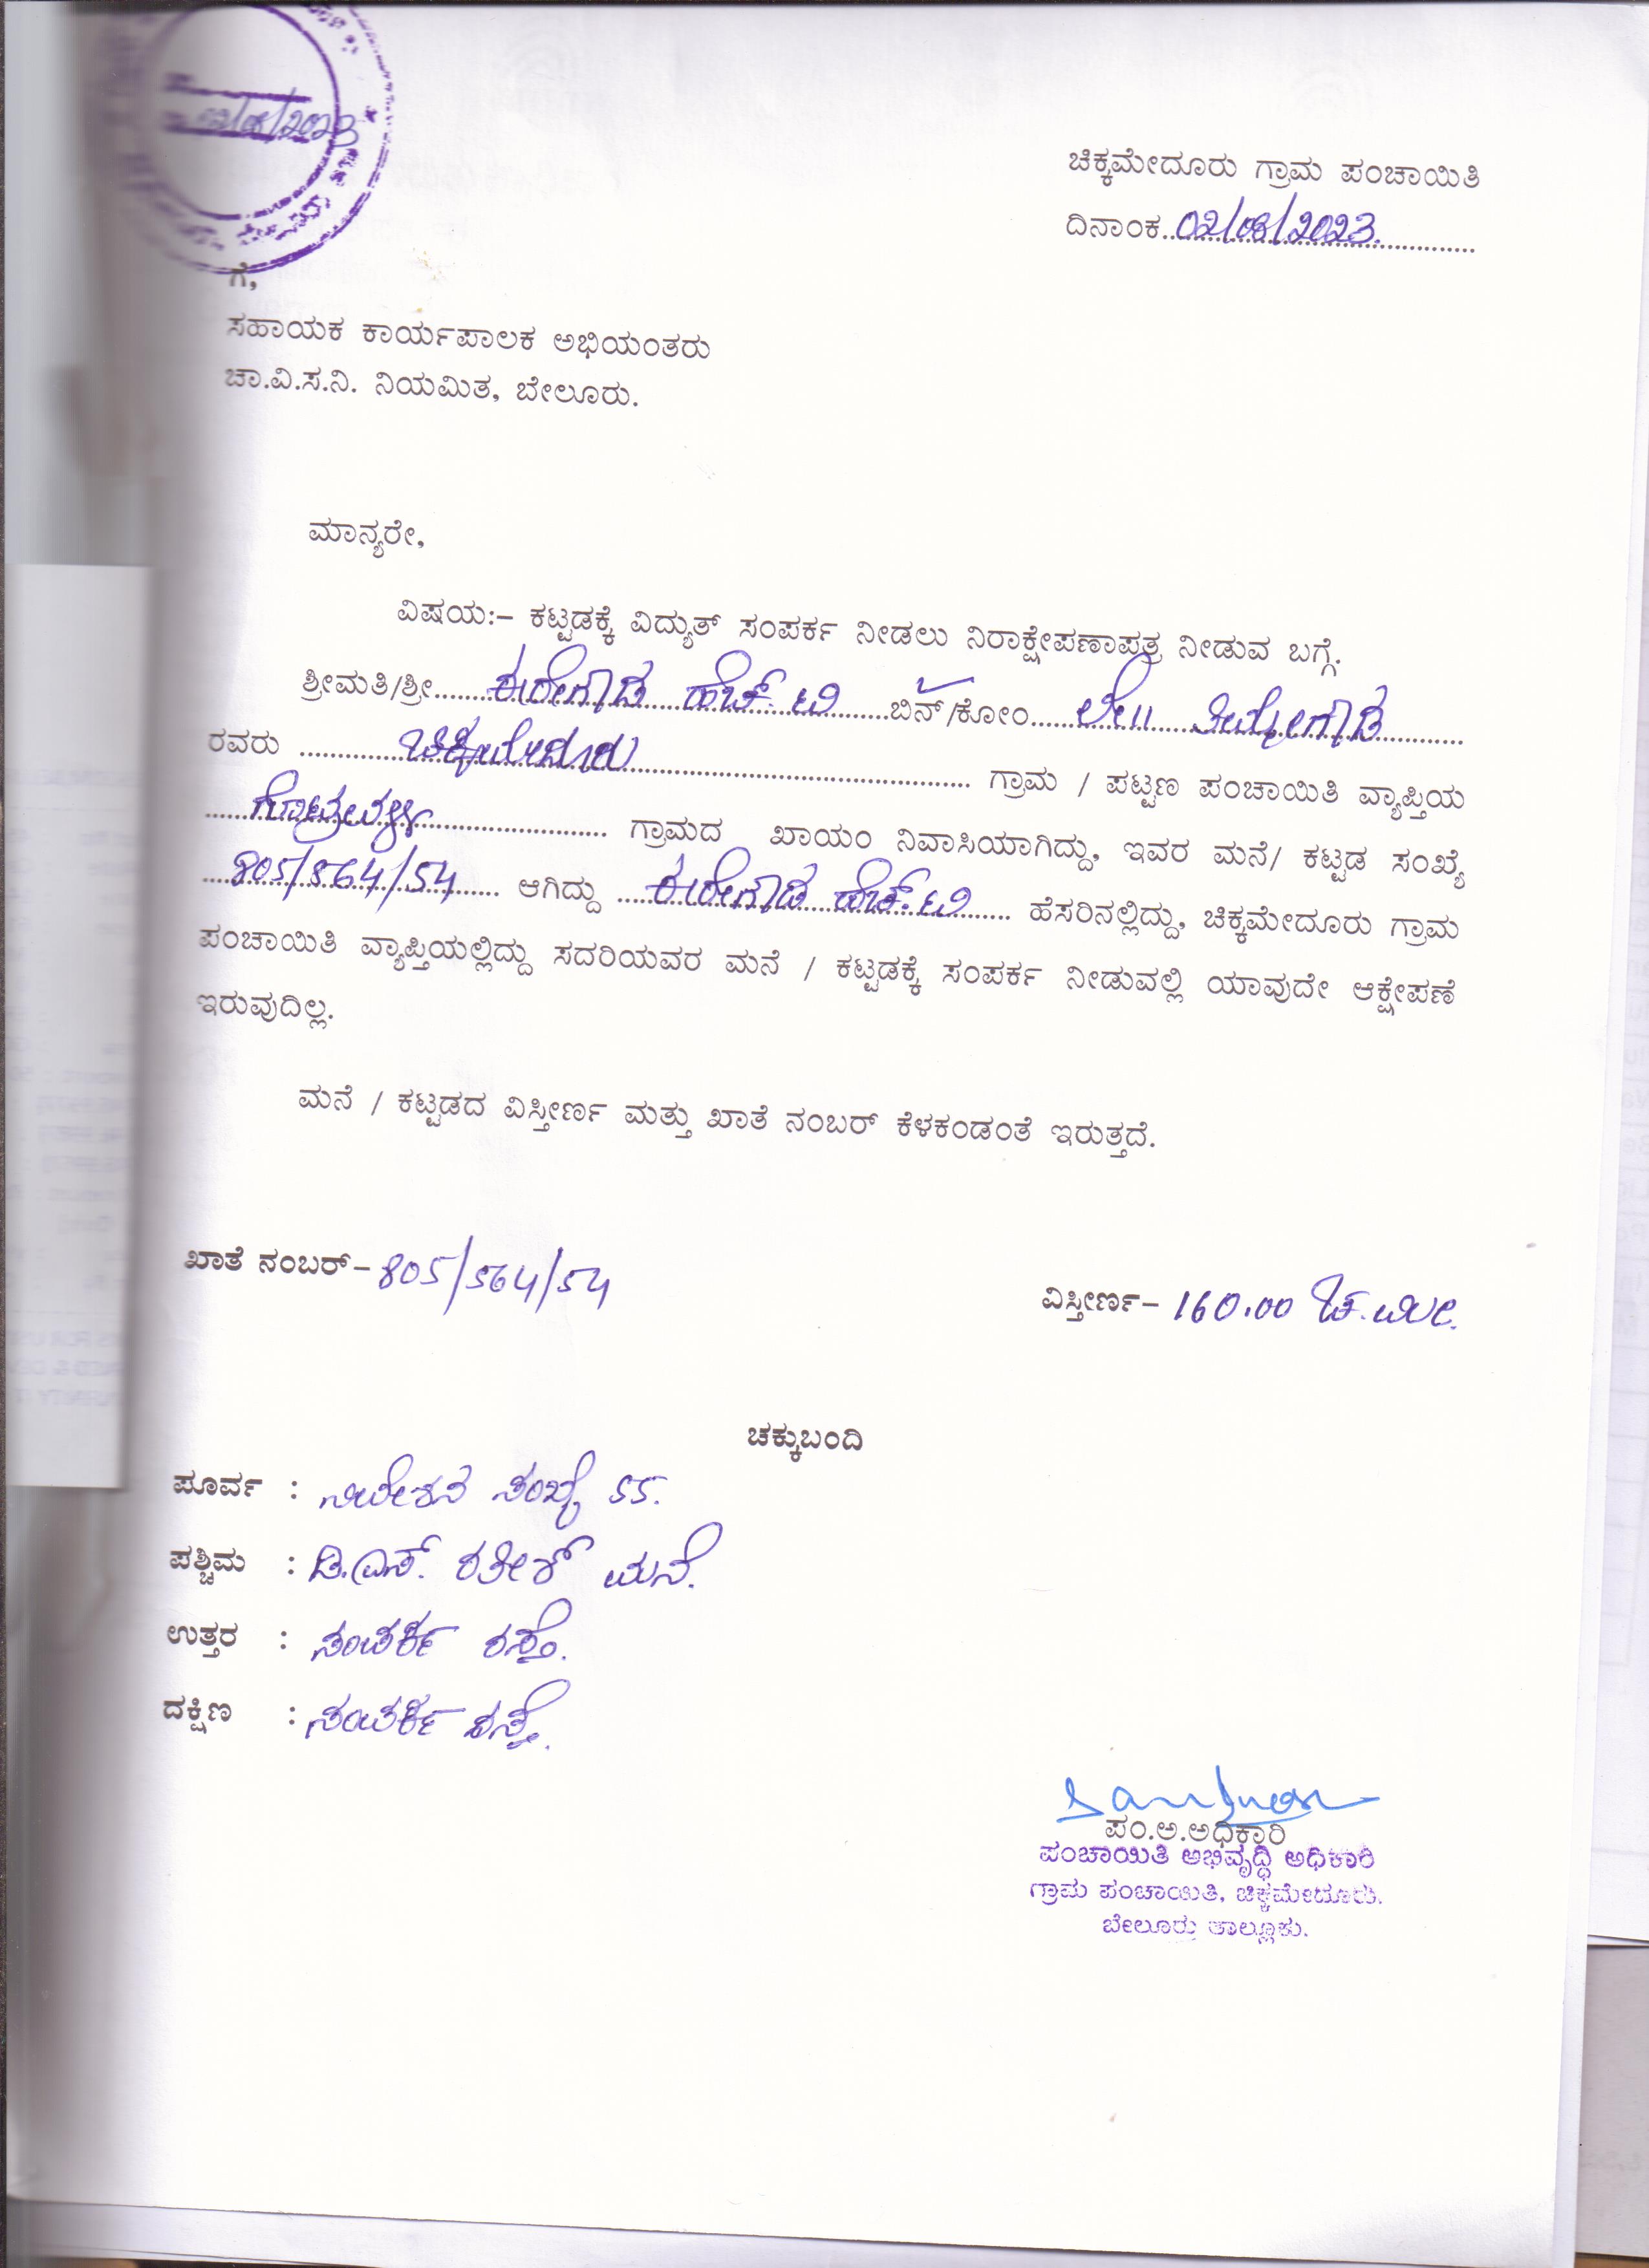 02/08/2023
ಚಿಕ್ಕಮೇದೂರು ಗ್ರಾಮ ಪಂಚಾಯಿತಿ
ದಿನಾಂಕ 02/08/2023.
ಗೆ,
ಸಹಾಯಕ ಕಾರ್ಯಪಾಲಕ ಅಭಿಯಂತರು
ಚಾ.ವಿ.ಸ.ನಿ. ನಿಯಮಿತ, ಬೇಲೂರು.
ಮಾನ್ಯರೇ,
ವಿಷಯ:– ಕಟ್ಟಡಕ್ಕೆ ವಿದ್ಯುತ್ ಸಂಪರ್ಕ ನೀಡಲು ನಿರಾಕ್ಷೇಪಣಾಪತ್ರ ನೀಡುವ ಬಗ್ಗೆ.
ಶ್ರೀಮತಿ/ಶ್ರೀ ಕರೀಗೌಡ ಹೆಚ್.ಟಿ ಬಿನ್/ಕೋಂ ಲೇ|| ತಿಮ್ಮೇಗೌಡ
ರವರು ಚಿಕ್ಕಮೇದೂರು ಗ್ರಾಮ / ಪಟ್ಟಣ ಪಂಚಾಯಿತಿ ವ್ಯಾಪ್ತಿಯ
ಗ್ರಾಮದ ಖಾಯಂ ನಿವಾಸಿಯಾಗಿದ್ದು, ಇವರ ಮನೆ/ ಕಟ್ಟಡ ಸಂಖ್ಯೆ
805/564/54 ಆಗಿದ್ದು ಕರೀಗೌಡ ಹೆಚ್.ಟಿ ಹೆಸರಿನಲ್ಲಿದ್ದು, ಚಿಕ್ಕಮೇದೂರು ಗ್ರಾಮ
ಪಂಚಾಯಿತಿ ವ್ಯಾಪ್ತಿಯಲ್ಲಿದ್ದು ಸದರಿಯವರ ಮನೆ / ಕಟ್ಟಡಕ್ಕೆ ಸಂಪರ್ಕ ನೀಡುವಲ್ಲಿ ಯಾವುದೇ ಆಕ್ಷೇಪಣೆ
ಇರುವುದಿಲ್ಲ.
ಮನೆ / ಕಟ್ಟಡದ ವಿಸ್ತೀರ್ಣ ಮತ್ತು ಖಾತೆ ನಂಬರ್ ಕೆಳಕಂಡಂತೆ ಇರುತ್ತದೆ.
ಖಾತೆ ನಂಬರ್– 805/564/54
ವಿಸ್ತೀರ್ಣ– 160.00 ಚ.ಮೀ.
ಚಕ್ಕುಬಂದಿ
ಪೂರ್ವ : ನಿವೇಶನ ಸಂಖ್ಯೆ 55.
ಪಶ್ಚಿಮ : ಡಿ.ಎಸ್. ರತೀಶ್ ಮನೆ.
ಉತ್ತರ : ಸಂಪರ್ಕ ರಸ್ತೆ.
ದಕ್ಷಿಣ : ಸಂಪರ್ಕ ರಸ್ತೆ.
ಪಂ.ಅ.ಅಧಿಕಾರಿ
ಪಂಚಾಯಿತಿ ಅಭಿವೃದ್ಧಿ ಅಧಿಕಾರಿ
ಗ್ರಾಮ ಪಂಚಾಯಿತಿ, ಚಿಕ್ಕಮೇದೂರು.
ಬೇಲೂರು ತಾಲ್ಲೂಕು.